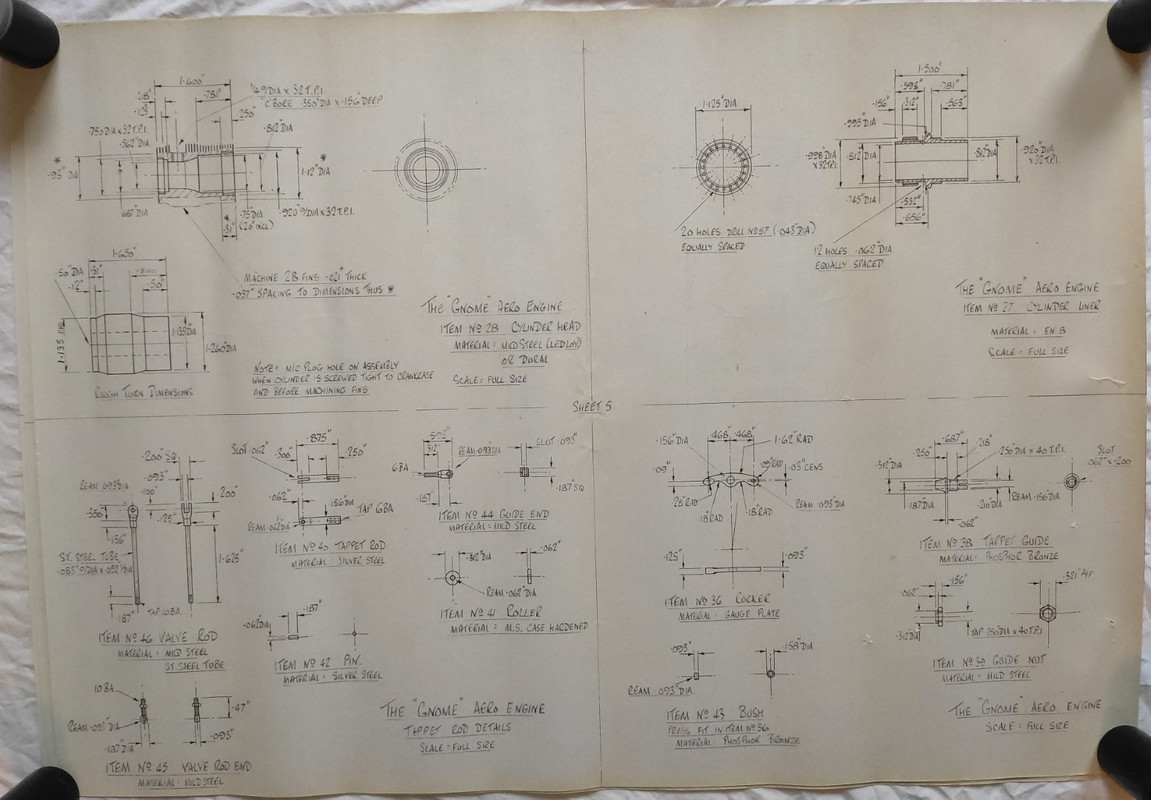 1·600"
·781"
·49"DIA x 32 T.P.I
'C'BORE ·350"DIA x ·156" DEEP
·250"
·750DIA x 32 T.P.I.
·562"DIA
·812"DIA
*
1·12"DIA
*
·687"DIA
·75"DIA
(20° INCL)
·920"O/DIA x 32 T.P.I.
*
1·650"
·50"DIA
·31"
·12"
·50"
1·135 DIA
1·135"DIA
1·260"DIA
ROUGH TURN DIMENSIONS
MACHINE 28 FINS ·021" THICK
·037" SPACING TO DIMENSIONS THUS *
NOTE: M/C PLUG HOLE ON ASSEMBLY
WHEN CYLINDER IS SCREWED TIGHT TO CRANKCASE
AND BEFORE MACHINING FINS
THE "GNOME" AERO ENGINE
ITEM No 28 CYLINDER HEAD
MATERIAL: MILD STEEL (LEDLOY)
OR DURAL
SCALE: FULL SIZE
1·125"DIA
20 HOLES DRILL No 57 (·043"DIA)
EQUALLY SPACED
1·500"
·593"
·781"
·156"
·312"
·565"
·998"DIA
x 32 T.P.I.
·812"DIA
·745"DIA
·812"DIA
·920"DIA
x 32 T.P.I.
·656"
12 HOLES ·062"DIA
EQUALLY SPACED
THE "GNOME" AERO ENGINE
ITEM No 27 CYLINDER LINER
MATERIAL: EN 8
SCALE: FULL SIZE
SHEET 5
·200"SQ
·093"
REAM ·093"DIA
·100"
·200"
·125"
·156"
ST. STEEL TUBE
1·625"
·187"
TAP 10 BA.
ITEM No 46 VALVE ROD
MATERIAL: MILD STEEL
ST STEEL TUBE
10 BA
·187"DIA
·47"
·093"
ITEM No 45 VALVE ROD END
MATERIAL: MILD STEEL
·875"
SLOT ·062"
·300"
·250"
·062"
·156"DIA
TAP 6BA
REAM ·062"DIA
ITEM No 40 TAPPET ROD
MATERIAL: SILVER STEEL
·187"
·062"DIA
ITEM No 42 PIN.
MATERIAL: SILVER STEEL
·312"
REAM ·093"DIA
SLOT ·093"
6 BA
·187"
·187"SQ
ITEM No 44 GUIDE END
MATERIAL: MILD STEEL
·312"DIA
·062"
REAM ·062"DIA
ITEM No 41 ROLLER
MATERIAL: M.S. CASE HARDENED
THE "GNOME" AERO ENGINE
TAPPET ROD DETAILS
SCALE: FULL SIZE
·156"DIA
·468"
·468"
1·62"RAD
·09"
·09"RAD
·03"CENS
·18"RAD
·18"RAD
REAM ·093"DIA
·125"
·093"
ITEM No 36 ROCKER
MATERIAL: GAUGE PLATE
·093"
·158"DIA
REAM ·093"DIA.
ITEM No 43 BUSH
PRESS FIT IN ITEM No 36
MATERIAL: PHOSPHOR BRONZE
·687"
·250"
·218"
·250"DIA x 40 T.P.I.
SLOT
·062" x ·200
·312"DIA
·187"DIA
·210"DIA
REAM ·156"DIA
·062"
ITEM No 38 TAPPET GUIDE
MATERIAL: PHOSPHOR BRONZE
·156"
·062"
·321" A/F
·312"DIA
TAP ·250"DIA x 40 T.P.I
ITEM No 39 GUIDE NUT
MATERIAL: MILD STEEL
THE "GNOME" AERO ENGINE
SCALE: FULL SIZE